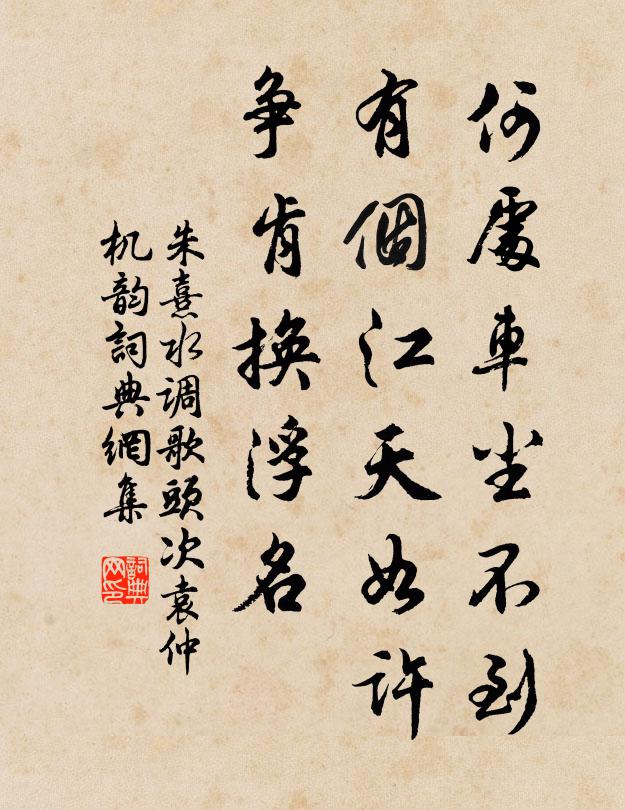 何處車塵不到
有個江天如許
争肯換浮名
朱熹水调歌頭次袁仲
机韵詞典網集
詞典
网印